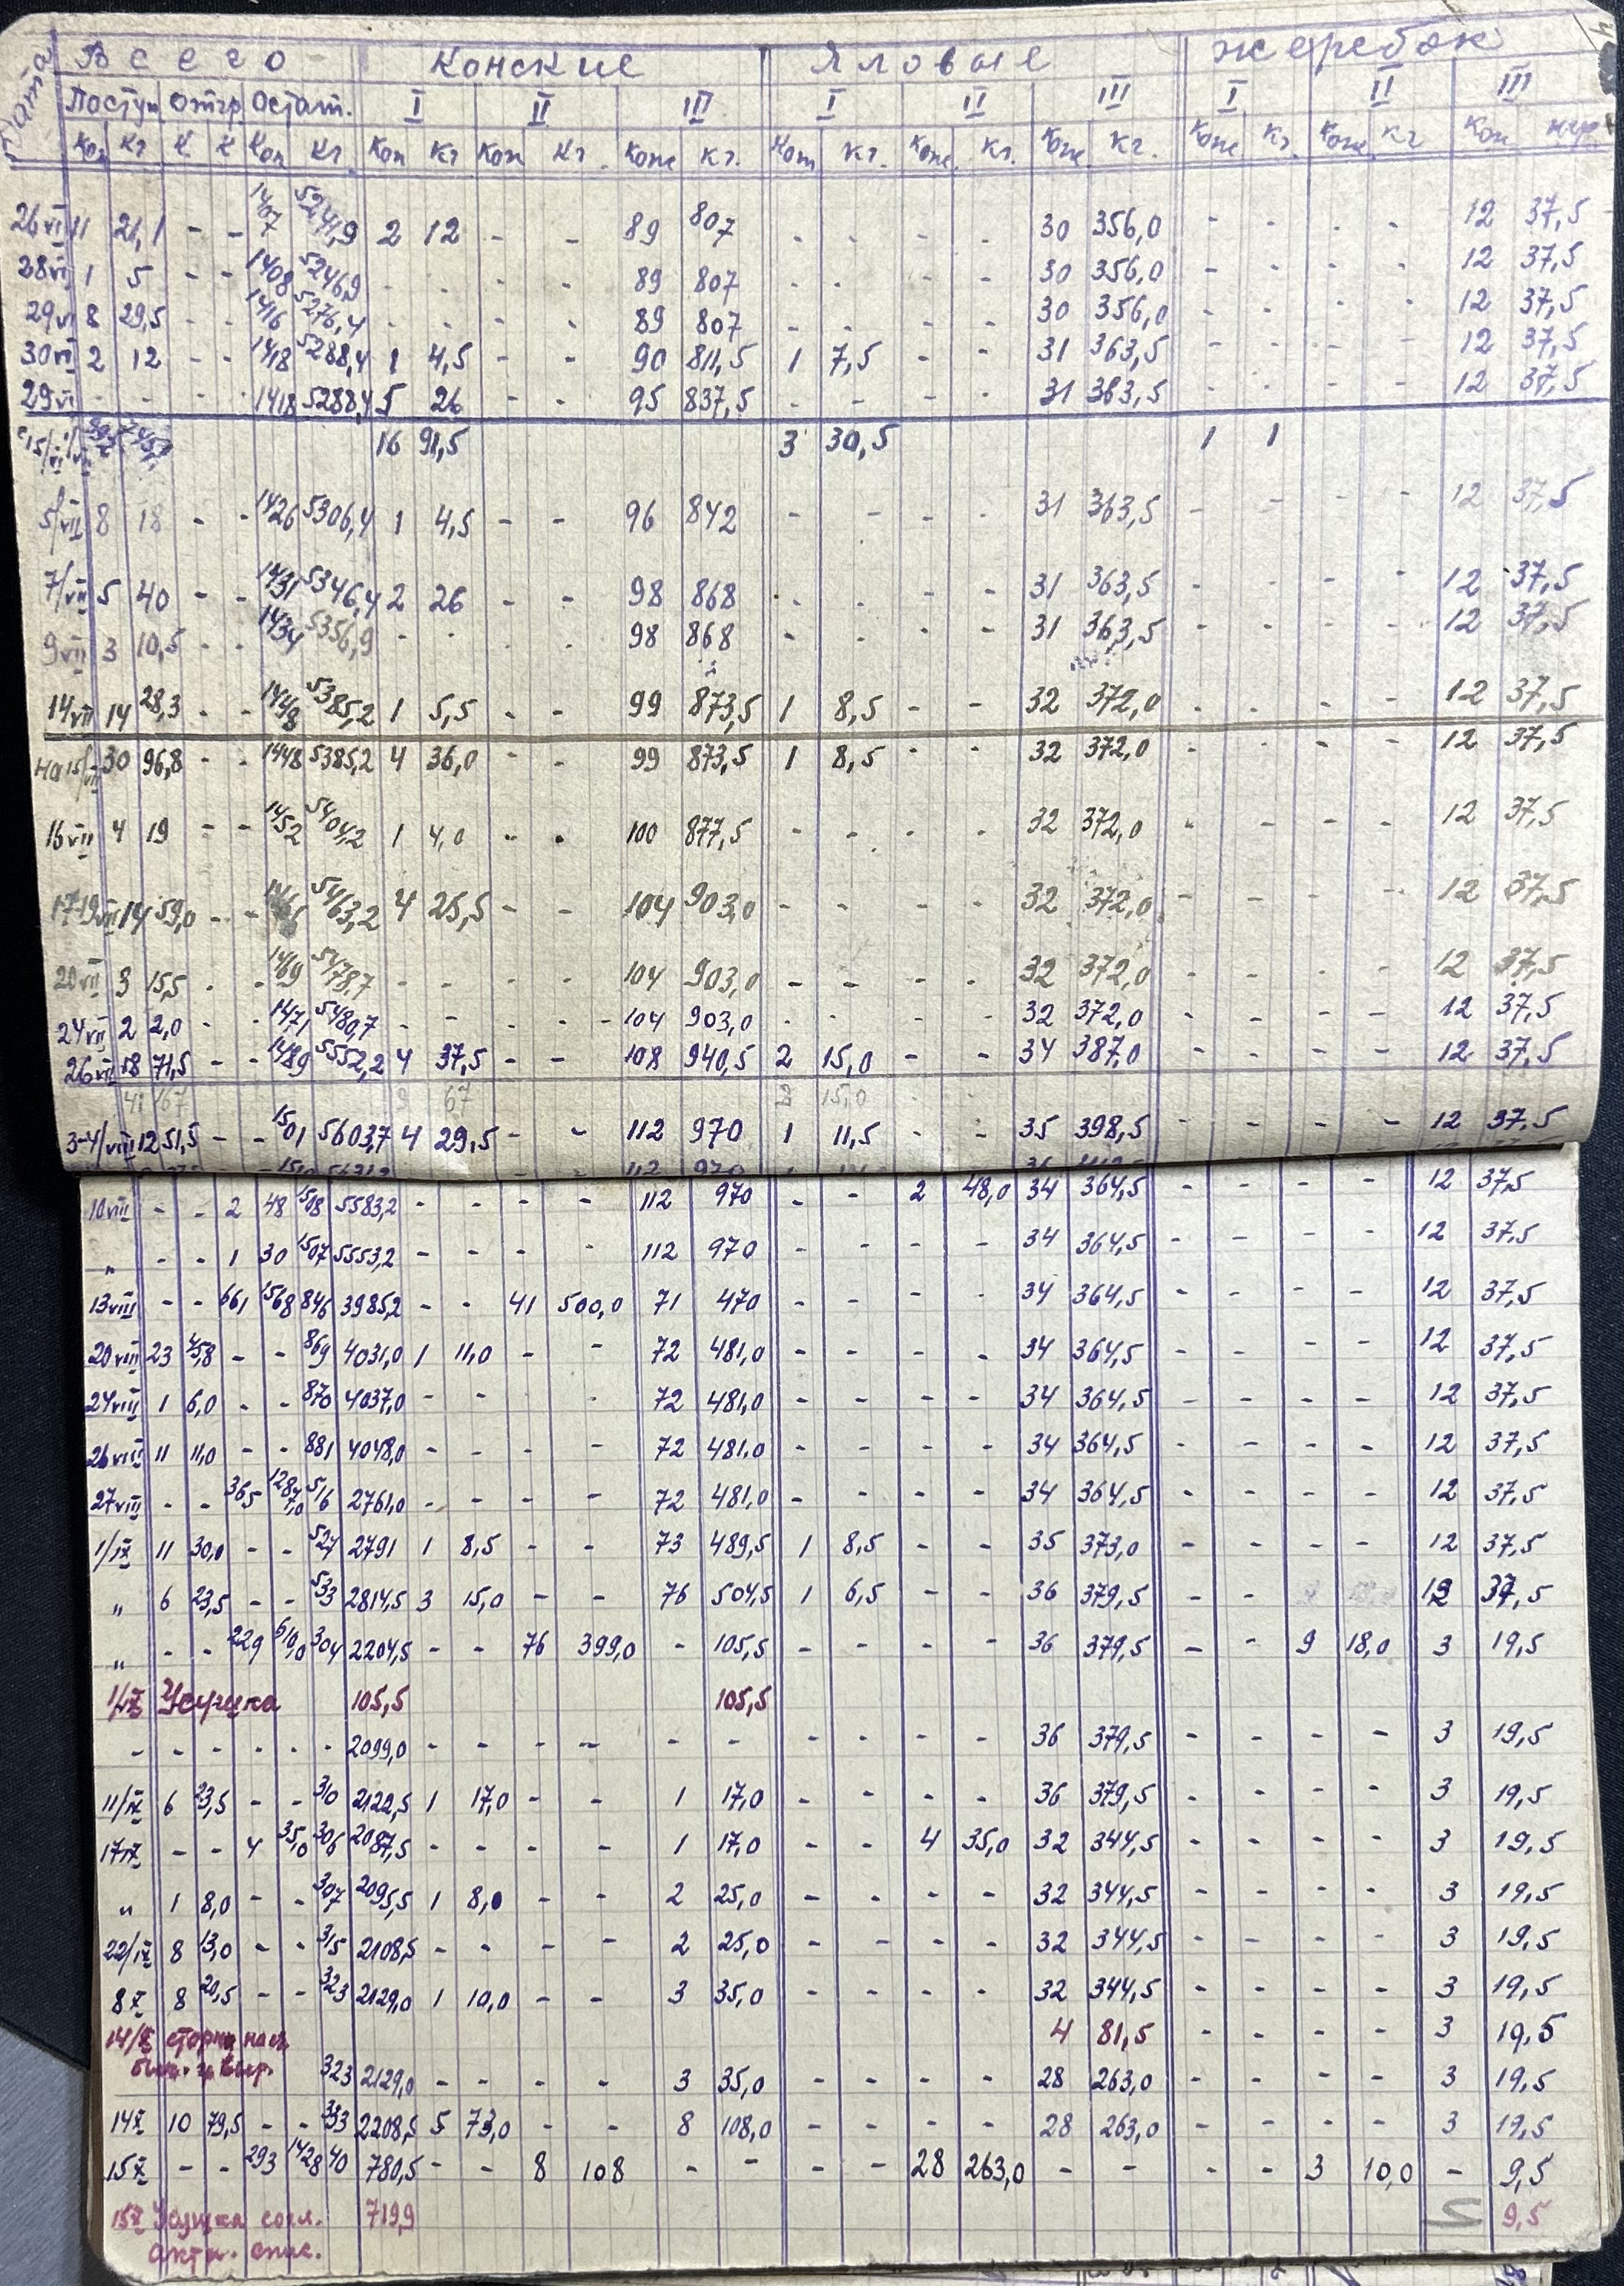 Дата Всего Конские Яловые жеребок
Поступ Отгр. Остат. I II III I II III I II III
Кож Кг К К Кож Кг. Кож Кг Кож Кг. Кож Кг. Кож Кг. Кож Кг. Кож Кг. Кож Кг. Кож Кг Кож
26 VI 11 21,1 - - 1407 5241,9 2 12 - - 89 807 - - - - 30 356,0 - - - - 12 37,5
28 VI 1 5 - - 1408 5246,9 - - - - 89 807 - - - - 30 356,0 - - - - 12 37,5
29 VI 8 29,5 - - 1416 5276,4 - - - - 89 807 - - - - 30 356,0 - - - - 12 37,5
30 VI 2 12 - - 1418 5288,4 1 4,5 - - 90 811,5 1 7,5 - - 31 363,5 - - - - 12 37,5
29 VI - - - - 1418 5288,4 5 26 - - 95 837,5 - - - - 31 363,5 - - - - 12 37,5
16 91,5 3 30,5 1 1
5/VII 8 18 - - 1426 5306,4 1 4,5 - - 96 842 - - - - 31 363,5 - - - - 12 37,5
7/VII 5 40 - - 1431 5346,4 2 26 - - 98 868 - - - - 31 363,5 - - - - 12 37,5
9 VII 3 10,5 - - 1434 5356,9 - - - - 98 868 - - - - 31 363,5 - - - - 12 37,5
14 VII 14 28,3 - - 1448 5385,2 1 5,5 - - 99 873,5 1 8,5 - - 32 372,0 - - - - 12 37,5
на 15/VII 30 96,8 - - 1448 5385,2 4 36,0 - - 99 873,5 1 8,5 - - 32 372,0 - - - - 12 37,5
16 VII 4 19 - - 1452 5404,2 1 4,0 - - 100 877,5 - - - - 32 372,0 - - - - 12 37,5
17-19 VII 14 59,0 - - 5463,2 4 25,5 - - 104 903,0 - - - - 32 372,0 - - - - 12 37,5
20 VII 3 15,5 - - 1469 5478,7 - - - - 104 903,0 - - - - 32 372,0 - - - - 12 37,5
24 VII 2 2,0 - - 1471 5480,7 - - - - 104 903,0 - - - - 32 372,0 - - - - 12 37,5
26 VII 18 71,5 - - 1489 5552,2 4 37,5 - - 108 940,5 2 15,0 - - 34 387,0 - - - - 12 37,5
41 167 9 67 2 15,0
3-4/VIII 12 51,5 - - 1501 5603,7 4 29,5 - - 112 970 1 11,5 - - 35 398,5 - - - - 12 37,5
10 VIII - - 2 48 1508 5583,2 - - - - 112 970 - - 2 48,0 34 364,5 - - - - 12 37,5
" - - 1 30 1507 5553,2 - - - - 112 970 - - - - 34 364,5 - - - - 12 37,5
13 VIII - - 661 1568 846 3985,2 - - 41 500,0 71 470 - - - - 34 364,5 - - - - 12 37,5
20 VIII 23 45,8 - - 869 4031,0 1 11,0 - - 72 481,0 - - - - 34 364,5 - - - - 12 37,5
24 VIII 1 6,0 - - 870 4037,0 - - - - 72 481,0 - - - - 34 364,5 - - - - 12 37,5
26 VIII 11 11,0 - - 881 4048,0 - - - - 72 481,0 - - - - 34 364,5 - - - - 12 37,5
27 VIII - - 365 1287,0 516 2761,0 - - - - 72 481,0 - - - - 34 364,5 - - - - 12 37,5
1/IX 11 30,0 - - 527 2791 1 8,5 - - 73 489,5 1 8,5 - - 35 373,0 - - - - 12 37,5
" 6 23,5 - - 533 2814,5 3 15,0 - - 76 504,5 1 6,5 - - 36 379,5 - - 12 37,5
" - - 229 610,0 304 2204,5 - - 76 399,0 - 105,5 - - - - 36 379,5 - - 9 18,0 3 19,5
1/IX Усушка 105,5 105,5
- - - - - - 2099,0 - - - - - - - - - - 36 379,5 - - - - 3 19,5
11/IX 6 23,5 - - 310 2122,5 1 17,0 - - 1 17,0 - - - - 36 379,5 - - - - 3 19,5
17 IX - - 4 35,0 306 2087,5 - - - - 1 17,0 - - 4 35,0 32 344,5 - - - - 3 19,5
" 1 8,0 - - 307 2095,5 1 8,0 - - 2 25,0 - - - - 32 344,5 - - - - 3 19,5
22/IX 8 13,0 - - 315 2108,5 - - - - 2 25,0 - - - - 32 344,5 - - - - 3 19,5
8 X 8 20,5 - - 323 2129,0 1 10,0 - - 3 35,0 - - - - 32 344,5 - - - - 3 19,5
14/X сторно 4 81,5 - - - - 3 19,5
323 2129,0 - - - - 3 35,0 - - - - 28 263,0 - - - - 3 19,5
14 X 10 79,5 - - 333 2208,5 5 73,0 - - 8 108,0 - - - - 28 263,0 - - - - 3 19,5
15 X - - 293 1428 40 780,5 - - 8 108 - - - - 28 263,0 - - - - 3 10,0 - 9,5
15 X Усушка согл. 719,9 9,5
акта спис.